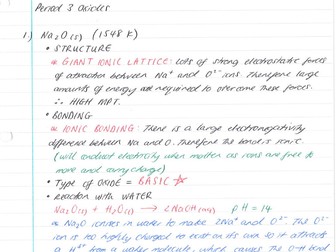 Period 3 Oxides
1.) Na₂O (s) (1548 K)
• STRUCTURE
* GIANT IONIC LATTICE: Lots of strong electrostatic forces
of attraction between Na⁺ and O²⁻ ions. Therefore large
amounts of energy are required to overcome these forces.
∴ HIGH MPT.
• BONDING
* IONIC BONDING: There is a large electronegativity
difference between Na and O. Therefore the bond is ionic
(will conduct electricity when molten as ions are free to
move and carry charge)
• Type of OXIDE = BASIC
• Reaction with WATER
Na₂O(s) + H₂O(l) → 2NaOH(aq) pH = 14
* Na₂O ionises in water to make 2Na⁺ and O²⁻. The O²⁻
ion is too highly charged to exist on its own so it attracts
a H⁺ from a water molecule, which causes the O-H